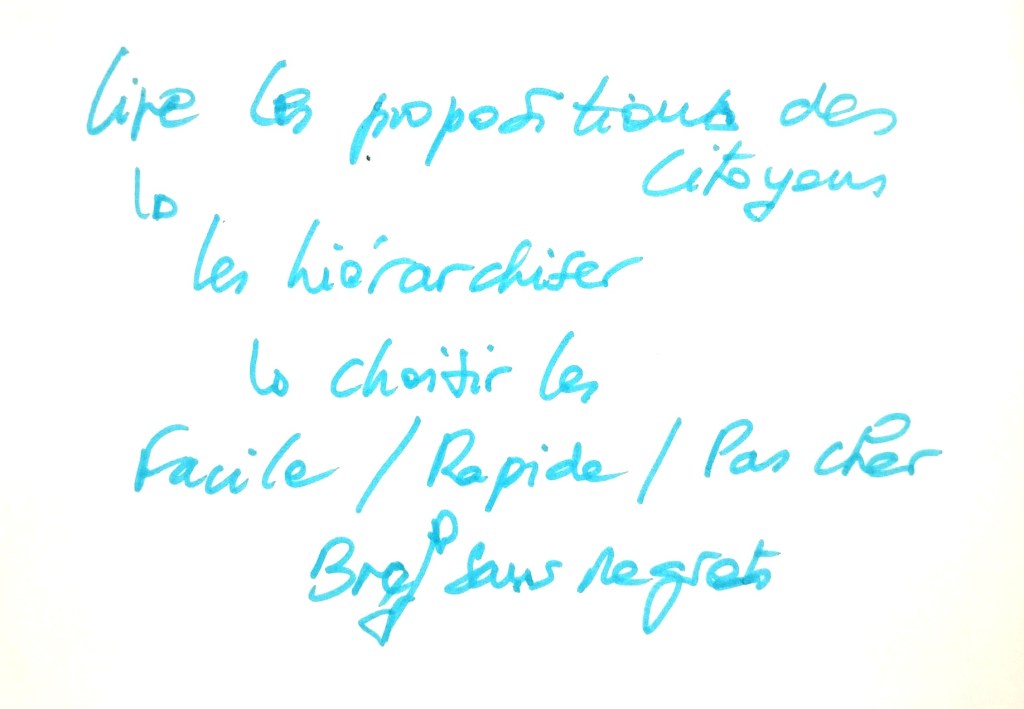 Lire les propositions des
citoyens
↳
les hiérarchiser
↳ choisir les
Facile / Rapide / Pas cher
Bref sans regrets